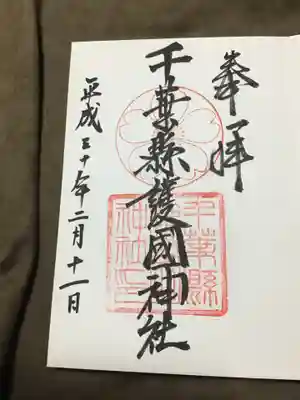 奉拝
千葉縣護國神社
平成三十年二月十一日
千葉縣護國神社印